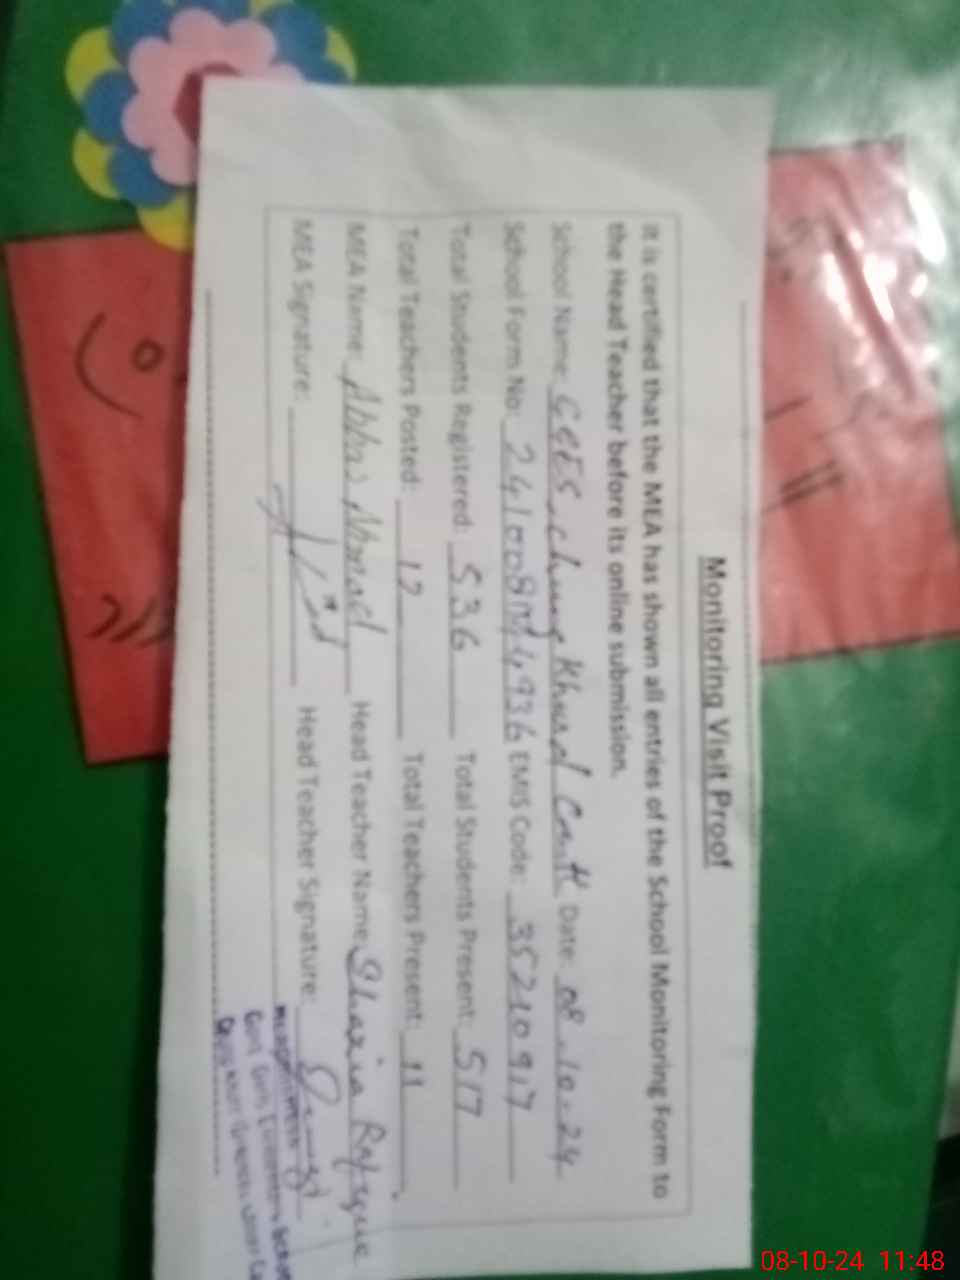 Monitoring Visit Proof
It is certified that the MEA has shown all entries of the School Monitoring Form to
the Head Teacher before its online submission.
School Name: GGES, Khurd Cantt Date: 08.10-24
School Form No: EMIS Code: 35210917
Total Students Registered: 536 Total Students Present: 517
Total Teachers Posted: 12 Total Teachers Present: 11
MEA Name: Abbas Ahmad Head Teacher Name: Shazia Rafique
MEA Signature: Head Teacher Signature:
08-10-24 11:48